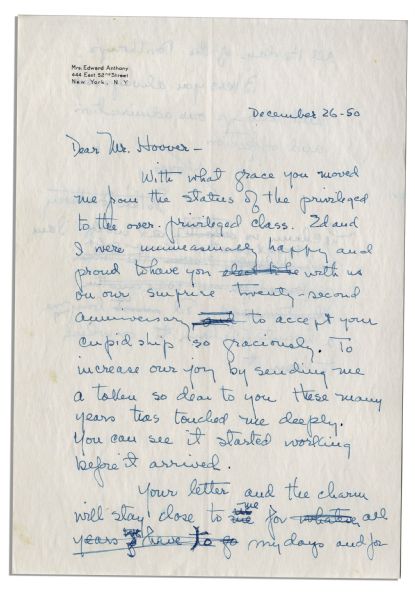 Mrs. Edward Anthony
444 East 52nd Street
New York, N. Y.
December 26-50
Dear Mr. Hoover -
With what grace you moved
me from the status of the privileged
to the over-privileged class. Ed and
I were immeasurably happy and
proud to have you with us
on our surprise twenty-second
anniversary to accept your
cupidship so graciously. To
increase our joy by sending me
a token so dear to you these many
years has touched me deeply.
You can see it started working
before it arrived.
Your letter and the charm
will stay close to me for all
my days and for